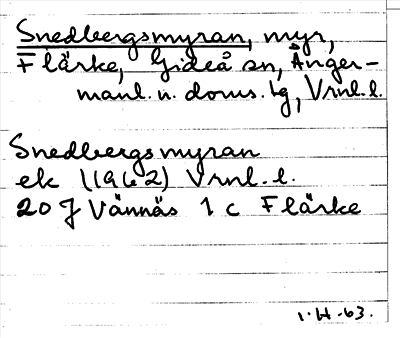 Snedbergsmyran, myr,
Flärke, Gideå sn, Ånger-
manl. n. doms. tg, Vrnl. l.
Snedbergsmyran
ek (1962) Vrnl. l.
20 J Vännäs 1 c Flärke